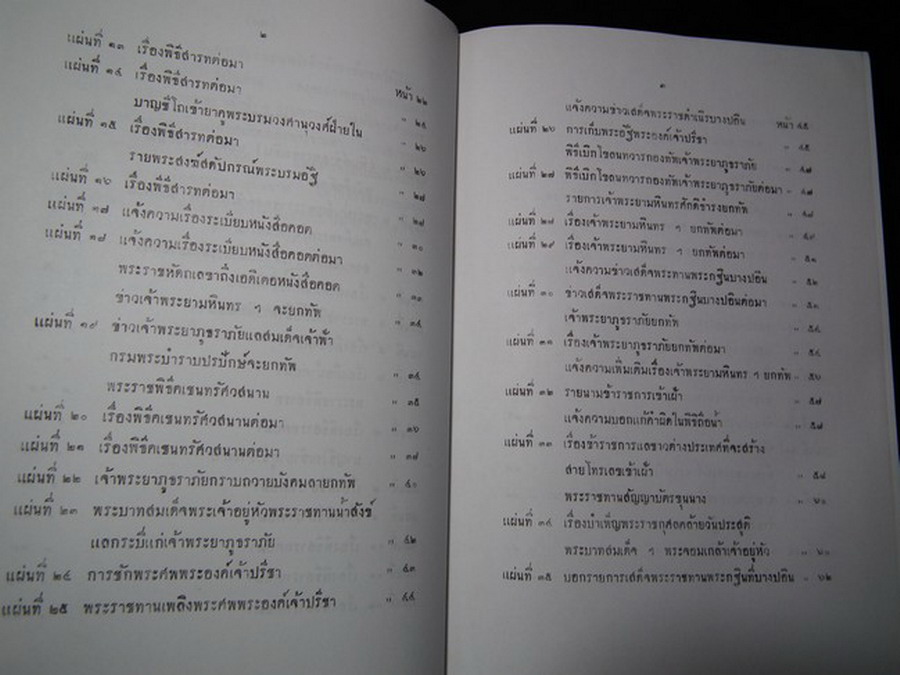 ๒
แผ่นที่ ๑๓ เรื่องพิธีสารทต่อมา หน้า ๒๒
แผ่นที่ ๑๔ เรื่องพิธีสารทต่อมา " ๒๔
บาญชีโถเข้ายาคูพระบรมวงศานุวงศ์ฝ่ายใน " ๒๖
แผ่นที่ ๑๕ เรื่องพิธีสารทต่อมา " ๒๖
รายพระสงฆ์สดัปกรณ์พระบรมอัฐิ " ๒๘
แผ่นที่ ๑๖ เรื่องพิธีสารทต่อมา " ๒๘
แผ่นที่ ๑๗ แจ้งความเรื่องระเบียบหนังสือคอต " ๓๐
แผ่นที่ ๑๘ แจ้งความเรื่องระเบียบหนังสือคอตต่อมา " ๓๒
พระราชหัตถเลขาถึงเอดิเตอหนังสือคอต " ๓๑
ข่าวเจ้าพระยามหินทร ฯ จะยกทัพ " ๓๔
แผ่นที่ ๑๙ ข่าวเจ้าพระยาภูธราภัยแลสมเด็จเจ้าฟ้า
กรมพระบำราบปรปักษ์จะยกทัพ " ๓๔
พระราชพิธีคเชนทรัศวสนาน " ๓๕
แผ่นที่ ๒๐ เรื่องพิธีคเชนทรัศวสนานต่อมา " ๓๖
แผ่นที่ ๒๑ เรื่องพิธีคเชนทรัศวสนานต่อมา " ๓๗
แผ่นที่ ๒๒ เจ้าพระยาภูธราภัยกราบถวายบังคมลายกทัพ " ๔๐
แผ่นที่ ๒๓ พระบาทสมเด็จพระเจ้าอยู่หัวพระราชทานน้ำสังข์
แลกระบี่แก่เจ้าพระยาภูธราภัย " ๔๒
แผ่นที่ ๒๔ การชักพระศพพระองค์เจ้าปรีชา " ๔๓
แผ่นที่ ๒๕ พระราชทานเพลิงพระศพพระองค์เจ้าปรีชา " ๔๔
๓
แจ้งความข่าวเสด็จพระราชดำเนิรบางปอิน หน้า ๔๕
แผ่นที่ ๒๖ การเก็บพระอัฐิพระองค์เจ้าปรีชา " ๔๕
พิธีเบิกโขลนทวารกองทัพเจ้าพระยาภูธราภัย " ๔๗
แผ่นที่ ๒๗ พิธีเบิกโขลนทวารกองทัพเจ้าพระยาภูธราภัยต่อมา " ๔๗
รายการเจ้าพระยามหินทรศักดิธำรงยกทัพ " ๔๘
แผ่นที่ ๒๘ เรื่องเจ้าพระยามหินทร ฯ ยกทัพต่อมา " ๔๙
แผ่นที่ ๒๙ เรื่องเจ้าพระยามหินทร ฯ ยกทัพต่อมา " ๕๑
แจ้งความข่าวเสด็จพระทานพระกฐินบางปอิน " ๕๒
แผ่นที่ ๓๐ ข่าวเสด็จพระราชทานพระกฐินบางปอินต่อมา " ๕๓
เจ้าพระยาภูธราภัยยกทัพ " ๕๔
แผ่นที่ ๓๑ เรื่องเจ้าพระยาภูธราภัยยกทัพต่อมา " ๕๔
แจ้งความเพิ่มเติมเรื่องเจ้าพระยามหินทร ฯ ยกทัพ " ๕๖
แผ่นที่ ๓๒ รายนามข้าราชการเข้าเฝ้า " ๕๗
แจ้งความบอกแก้คำผิดในพิธีถือน้ำ " ๕๗
แผ่นที่ ๓๓ เรื่องข้าราชการแลชาวต่างประเทศที่จะสร้าง
สายโทรเลขเข้าเฝ้า " ๕๘
พระราชทานสัญญาบัตรขุนนาง " ๖๐
แผ่นที่ ๓๔ เรื่องบำเพ็ญพระราชกุศลคล้ายวันประสูติ
พระบาทสมเด็จ ฯ พระจอมเกล้าเจ้าอยู่หัว " ๖๐
แผ่นที่ ๓๕ บอกรายการเสด็จพระราชทานพระกฐินที่บางปอิน " ๖๒